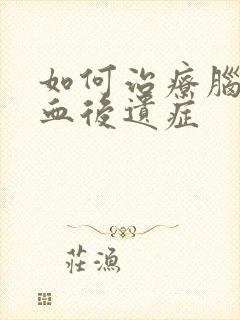 如何治療腦
血後遺症
莊漁